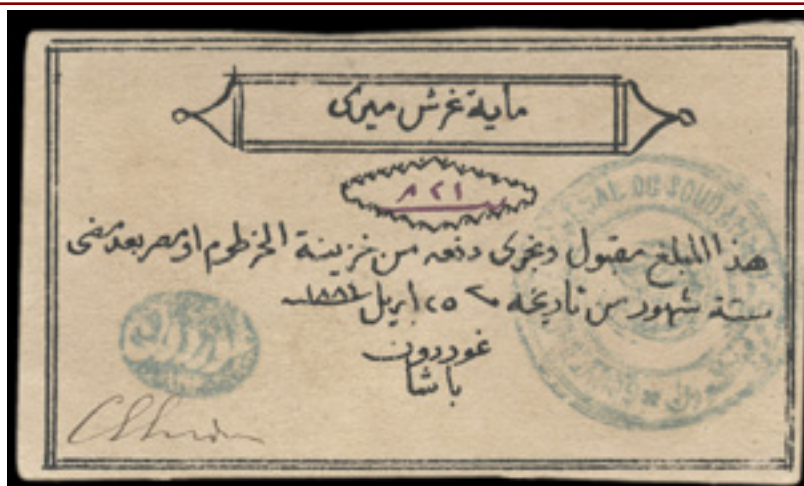 ماية غرش ميرى
٨٢١
هذا المبلغ مقبول ويجرى دفعه من خزينة الخرطوم او مصر بعد مضى
ستة شهور من تاريخه ٢٥ ابريل ١٨٨٤
غوردون
باشا